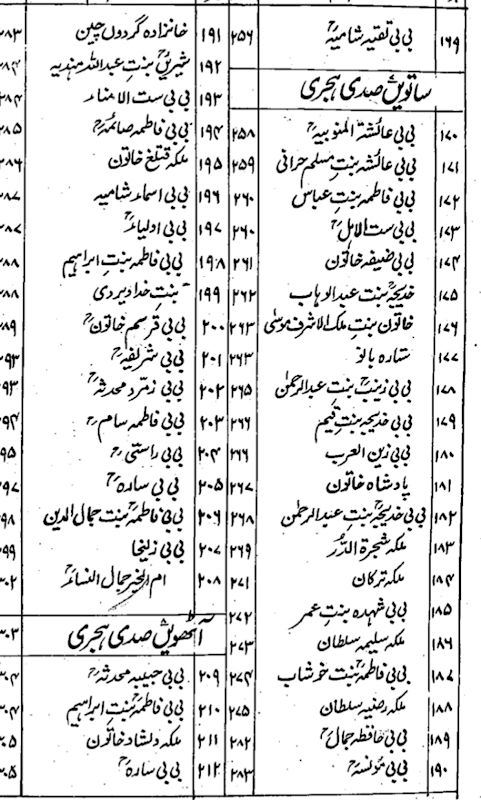 ۱۶۹ بی بی تقیہ شامیہؒ ۲۵۶
ساتویں صدی ہجری
۱۷۰ بی بی عائشۃ المنوبیہؒ ۲۵۸
۱۷۱ بی بی عائشہ بنتِ مسلم حرانی ۲۵۹
۱۷۲ بی بی فاطمہ بنتِ عباس ۲۶۰
۱۷۳ بی بی ست الاملؒ ۲۶۰
۱۷۴ بی بی ضیفہ خاتون ۲۶۱
۱۷۵ خدیجہؒ بنت عبدالوہاب ۲۶۲
۱۷۶ خاتون بنتِ ملک الاشرف موسٰی ۲۶۳
۱۷۷ ستارہ بانو ۲۶۳
۱۷۸ بی بی زینبؒ بنتِ عبدالرحمٰن ۲۶۵
۱۷۹ بی بی خدیجہ بنتِ قیم ۲۶۶
۱۸۰ بی بی زین العرب ۲۶۶
۱۸۱ پادشاہ خاتون ۲۶۷
۱۸۲ بی بی خدیجہؒ بنت عبدالرحمٰن ۲۶۸
۱۸۳ ملکہ شجرۃ الدُّر ۲۶۹
۱۸۴ ملکہ ترکان ۲۷۱
۱۸۵ بی بی شہدہ بنتِ عمر ۲۷۲
۱۸۶ ملکہ سلیمہ سلطان ۲۷۳
۱۸۷ بی بی فاطمہؒ بنت خوشاب ۲۷۴
۱۸۸ ملکہ رضیہ سلطان ۲۷۵
۱۸۹ بی بی حافظہ جمالؒ ۲۸۲
۱۹۰ بی بی مونسہؒ ۲۸۳
۱۹۱ خانزادہ گردوں چین ۸۳
۱۹۲ شیریںؒ بنتِ عبداللہ ہندیہ ۸۴
۱۹۳ بی بی ست الامناء ۸۴
۱۹۴ بی بی فاطمہ صائمہؒ ۸۵
۱۹۵ ملکہ قتلغ خاتون ۸۶
۱۹۶ بی بی اسماء شامیہ ۸۷
۱۹۷ بی بی اولیاءؒ ۸۷
۱۹۸ بی بی فاطمہ بنتِ ابراہیم ۸۸
۱۹۹ بنت خداویردی ۸۸
۲۰۰ بی بی قرسم خاتونؒ ۸۹
۲۰۱ بی بی شریفہؒ ۹۳
۲۰۲ بی بی زمرد محدثہؒ ۹۳
۲۰۳ بی بی فاطمہ سامؒ ۹۴
۲۰۴ بی بی راستیؒ ۹۵
۲۰۵ بی بی سارہؒ ۹۷
۲۰۶ بی بی فاطمہؒ بنت جمال الدین ۹۸
۲۰۷ بی بی زلیخا ۹۹
۲۰۸ ام الخیر جمال النساءؒ ۰۲
آٹھویں صدی ہجری ۰۳
۲۰۹ بی بی حبیبہ محدثہؒ ۰۴
۲۱۰ بی بی فاطمہؒ بنتِ ابراہیم ۰۴
۲۱۱ ملکہ دلشاد خاتون ۰۵
۲۱۲ بی بی سارہؒ ۰۵